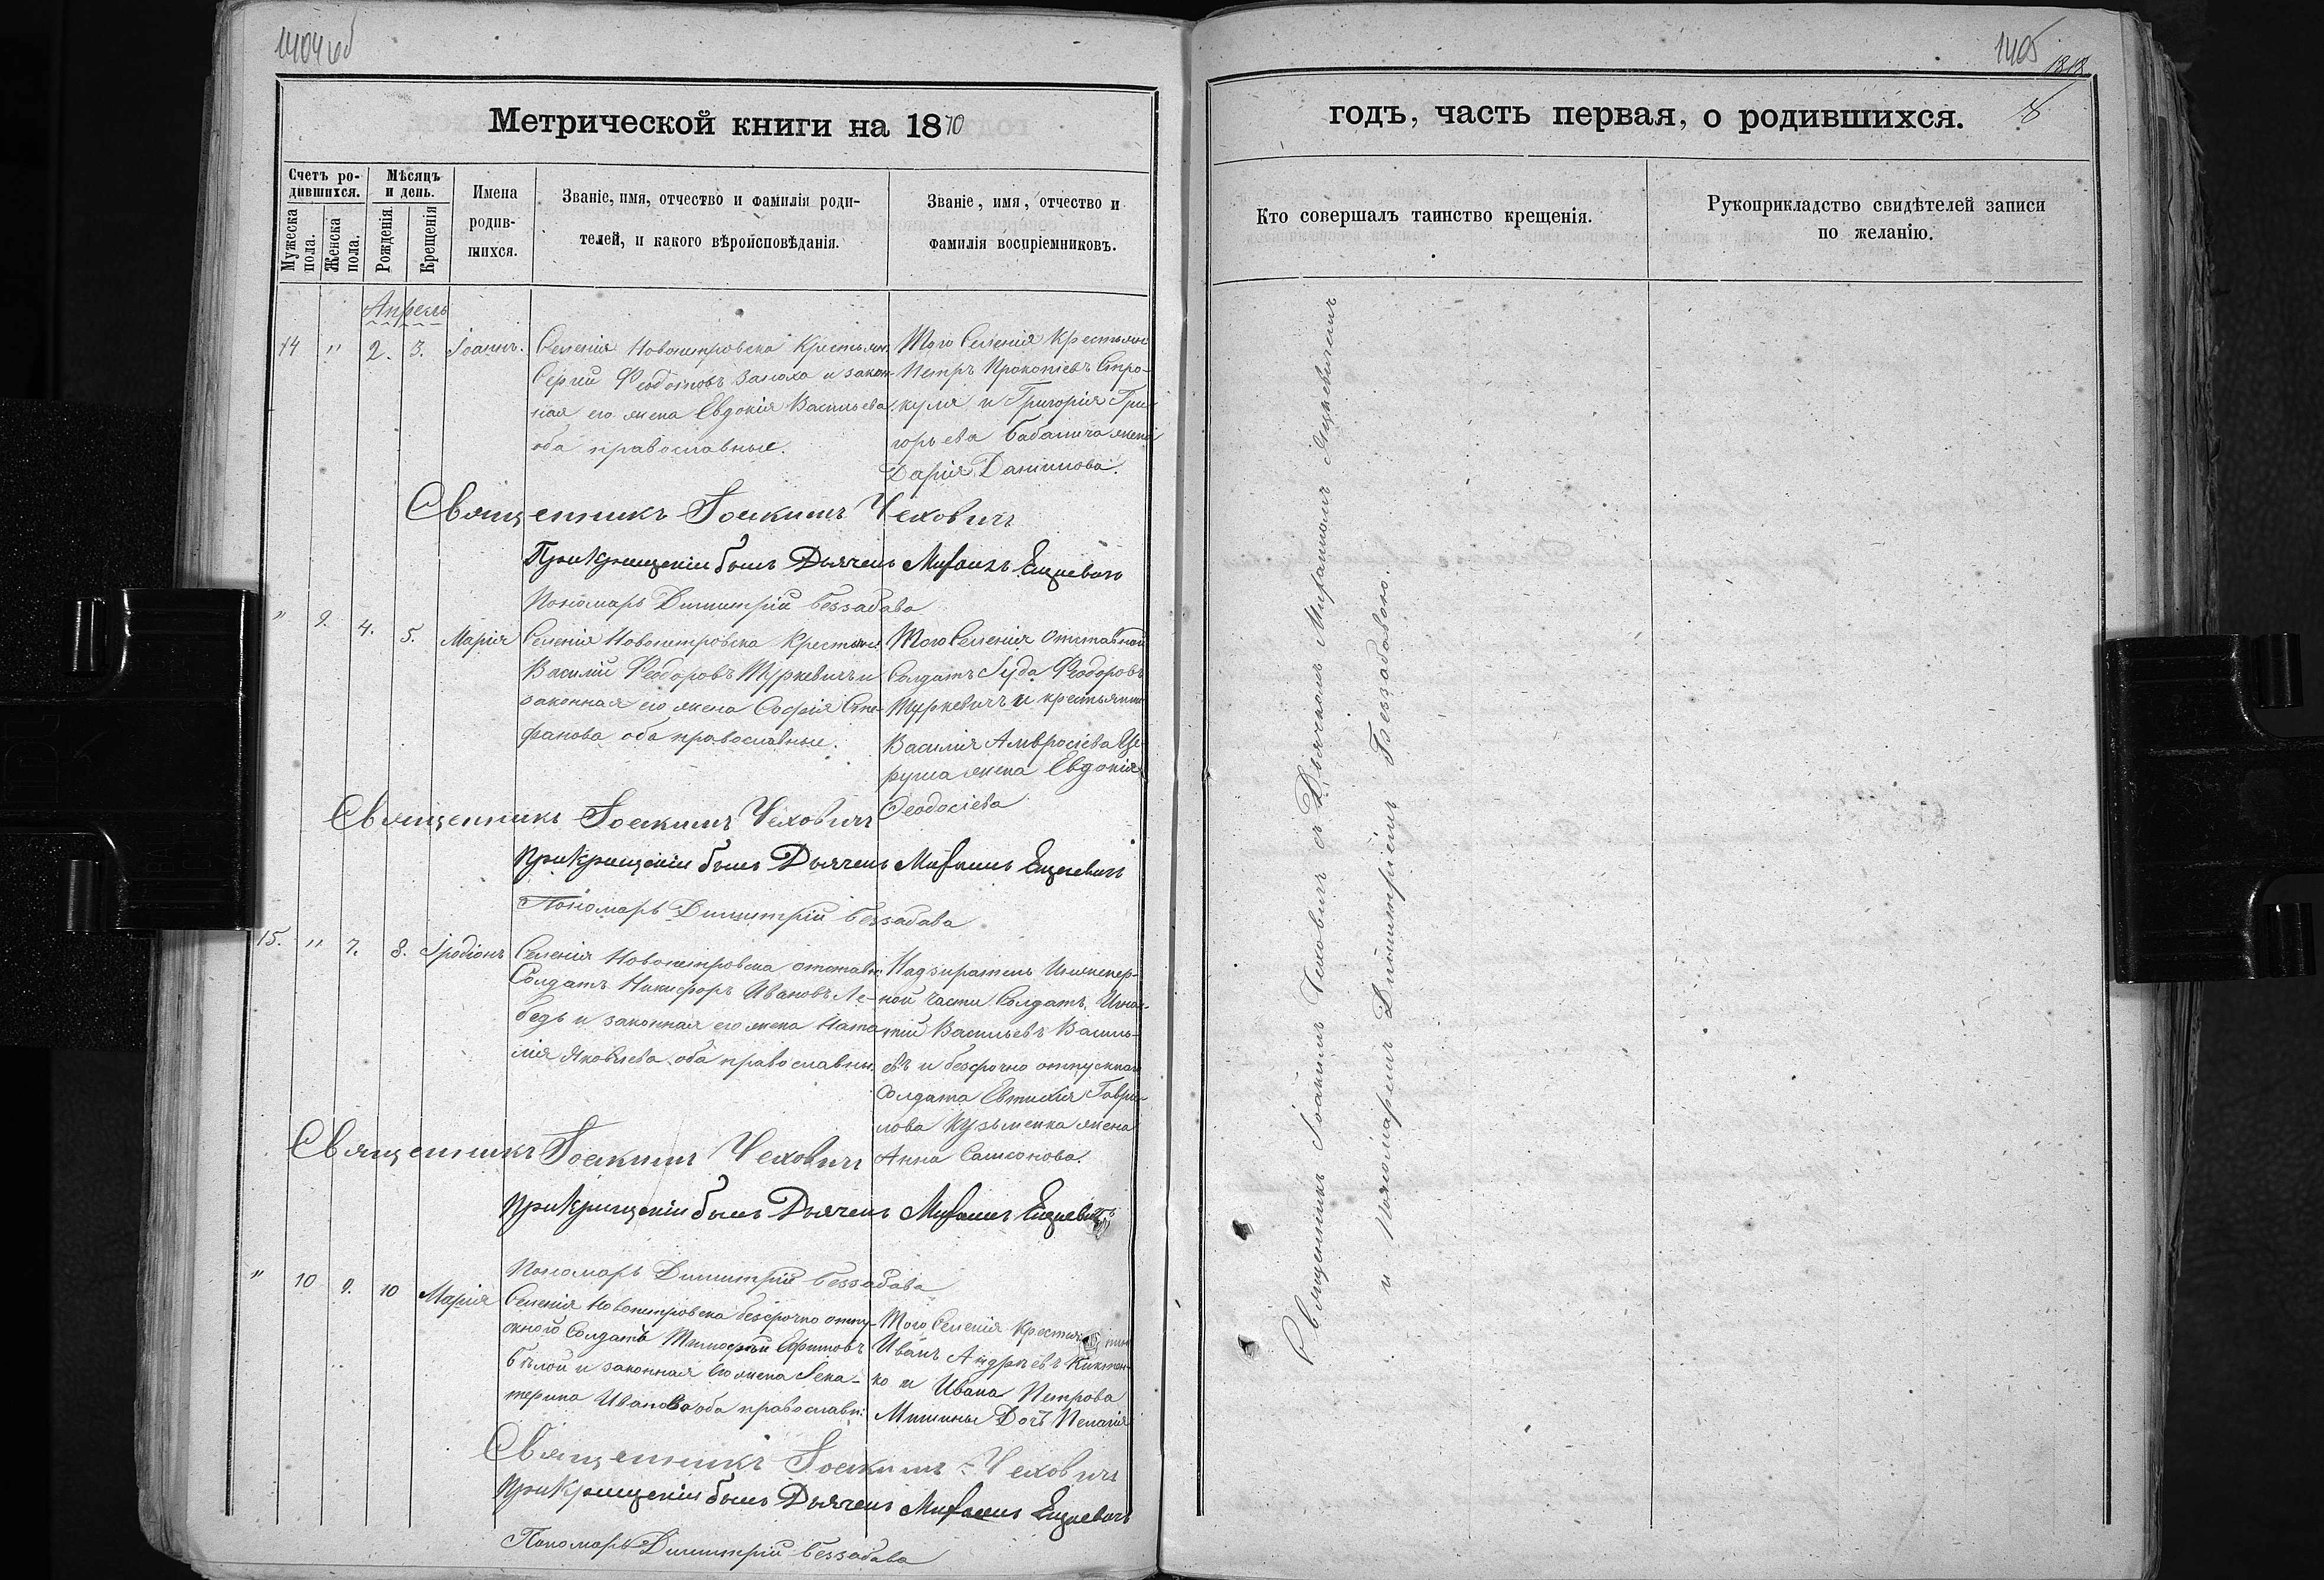 1404 об
Метрической книги на 1870
Счетъ ро-
дившихся.
Мѣсяцъ
и день.
Мужеска
пола.
Женска
пола.
Рожденія.
Крещенія
Имена
родив-
шихся.
Званіе, имя, отчество и фамилія роди-
телей, и какого вѣроисповѣданія.
Званіе, имя, отчество и
фамилія воспріемниковъ.
Апрель
14 " 2. 3. Іоаннъ.
Селенія Новопетровска Крестьян.
Сергій Феодотовъ Залоха и закон-
ная его жена Евдокія Васильева
оба православные.
Того Селенія Крестьян
Петръ Прокопіевъ Стро-
куля и Григорія Гри-
горьева Бабанича жена
Дарія Данилова.
Священникъ Іоакимъ Чеховичъ
При Крещеніи былъ Дьячекъ Михаилъ
Пономарь Димитрій Беззабава
" 9. 4. 5. Марія
Селенія Новопетровска Крестьян.
Василій Феодоровъ Туркевичъ и
законная его жена Софія Сте-
фанова оба православные.
Того Селенія Отставной
Солдатъ Іуда Феодоровъ
Туркевичъ и крестьянина
Василія Амвросіева
жена Евдокія
Феодосіева
Священникъ Іоакимъ Чеховичъ
При Крещеніи былъ Дьячекъ Михаилъ
Пономарь Димитрій Беззабава
15. " 7. 8. Іродіонъ
Селенія Новопетровска отставн.
Солдатъ Никифоръ Ивановъ Ле-
бедь и законная его жена Ната-
лія Яковлева оба православны.
Надзиратель Инженер-
ной части Солдатъ Игна-
тій Васильевъ Василь-
евъ и безсрочно отпускнаго
Солдата Евтихія Гаври-
лова Кузьменка жена
Анна
Священникъ Іоакимъ Чеховичъ
При Крещеніи былъ Дьячекъ Михаилъ
Пономарь Димитрій Беззабава
" 10 9. 10 Марія
Селенія Новопетровска безсрочно отпу-
скного Солдатъ Тимофей Ефимовъ
Бѣлой и законная его жена Іека-
терина Иванова оба православн:
Того Селенія Крестьянинъ
Иванъ Андреевъ Никитен-
ко и Ивана Петрова
Дочь Пелагія
Священникъ Іоакимъ Чеховичъ
При Крещеніи былъ Дьячекъ Михаилъ
Пономарь Димитрій Беззабава
1405
годъ, часть первая, о родившихся.
Кто совершалъ таинство крещенія.
Рукоприкладство свидѣтелей записи
по желанію.
Священникъ Іоакимъ Чеховичъ съ Дьячкомъ Михаиломъ
и Пономаремъ Димитріемъ Беззабавою.